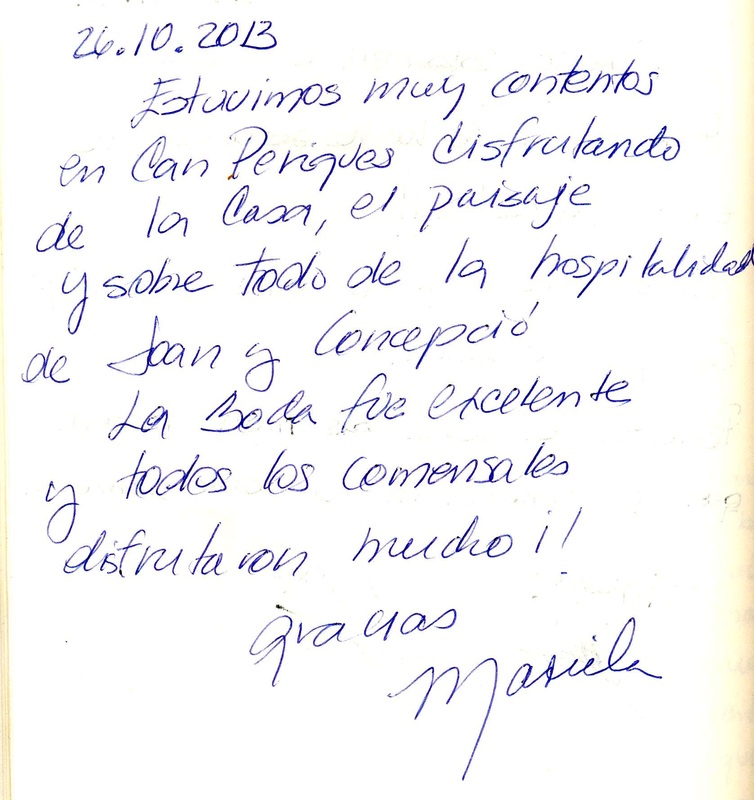 26.10.2013
Estuvimos muy contentos
en Can Periques disfrutando
de la Casa, el paisaje
y sobre todo de la hospitalidad
de Joan y Concepció
La Boda fue excelente
y todos los comensales
disfrutaron mucho ¡!
Gracias
Mariela